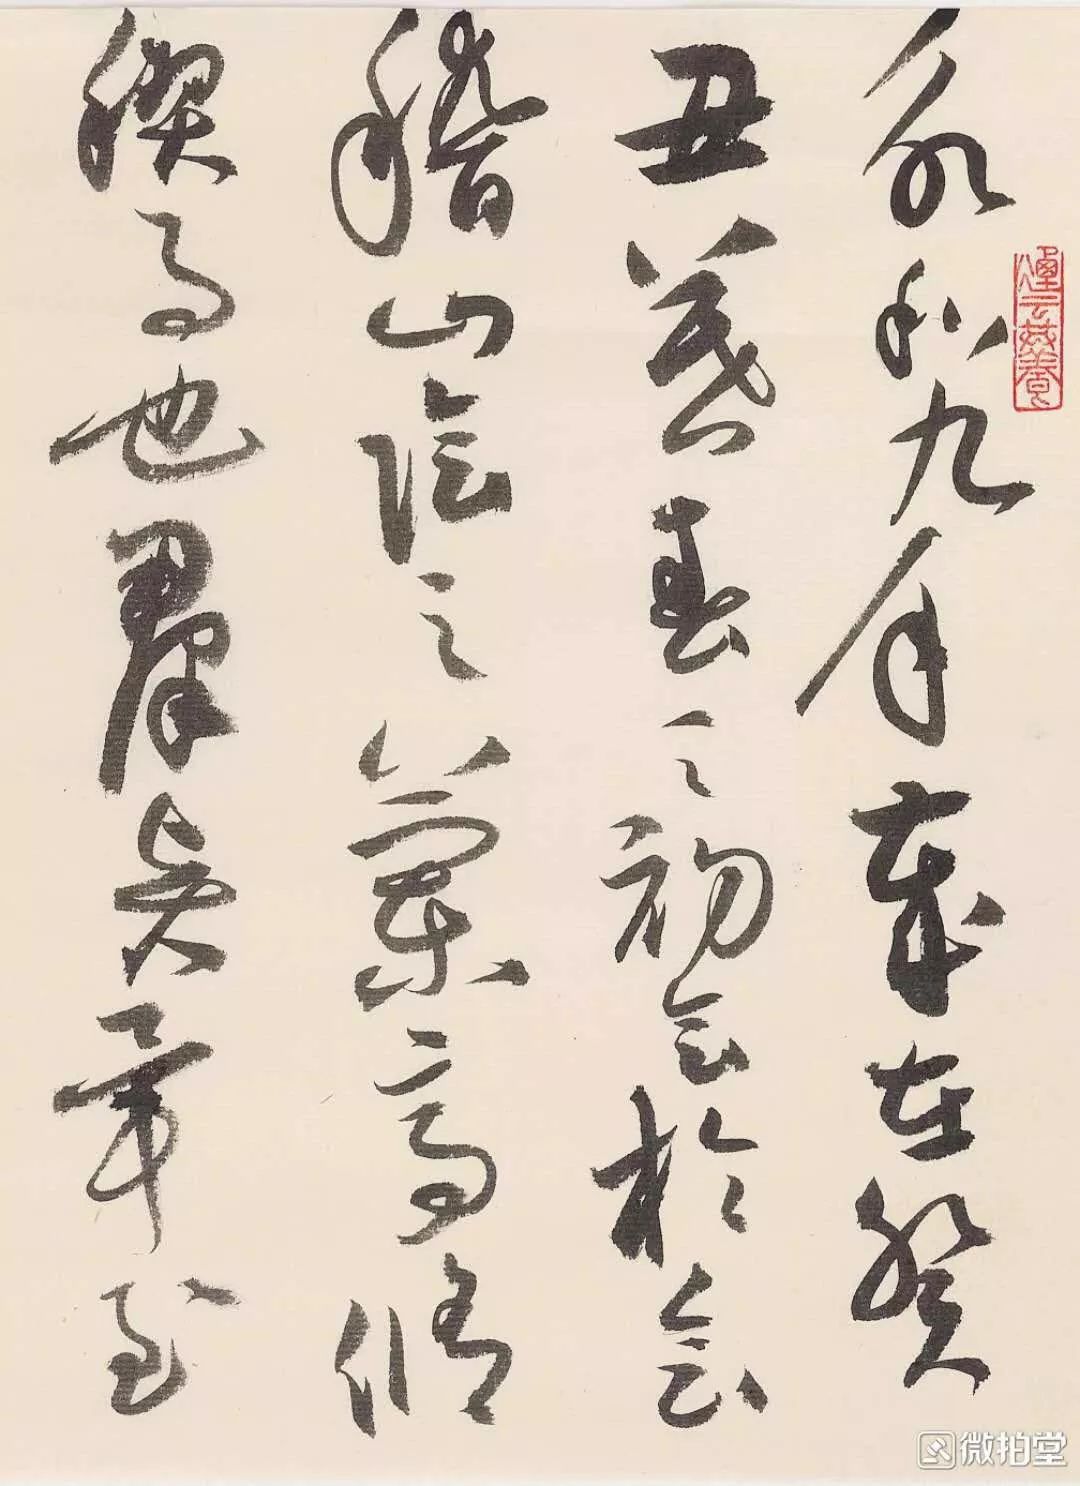 永和九年歲在癸
丑暮春之初會於會
稽山陰之蘭亭脩
稧事也羣賢畢至
煙雲供養
微拍堂